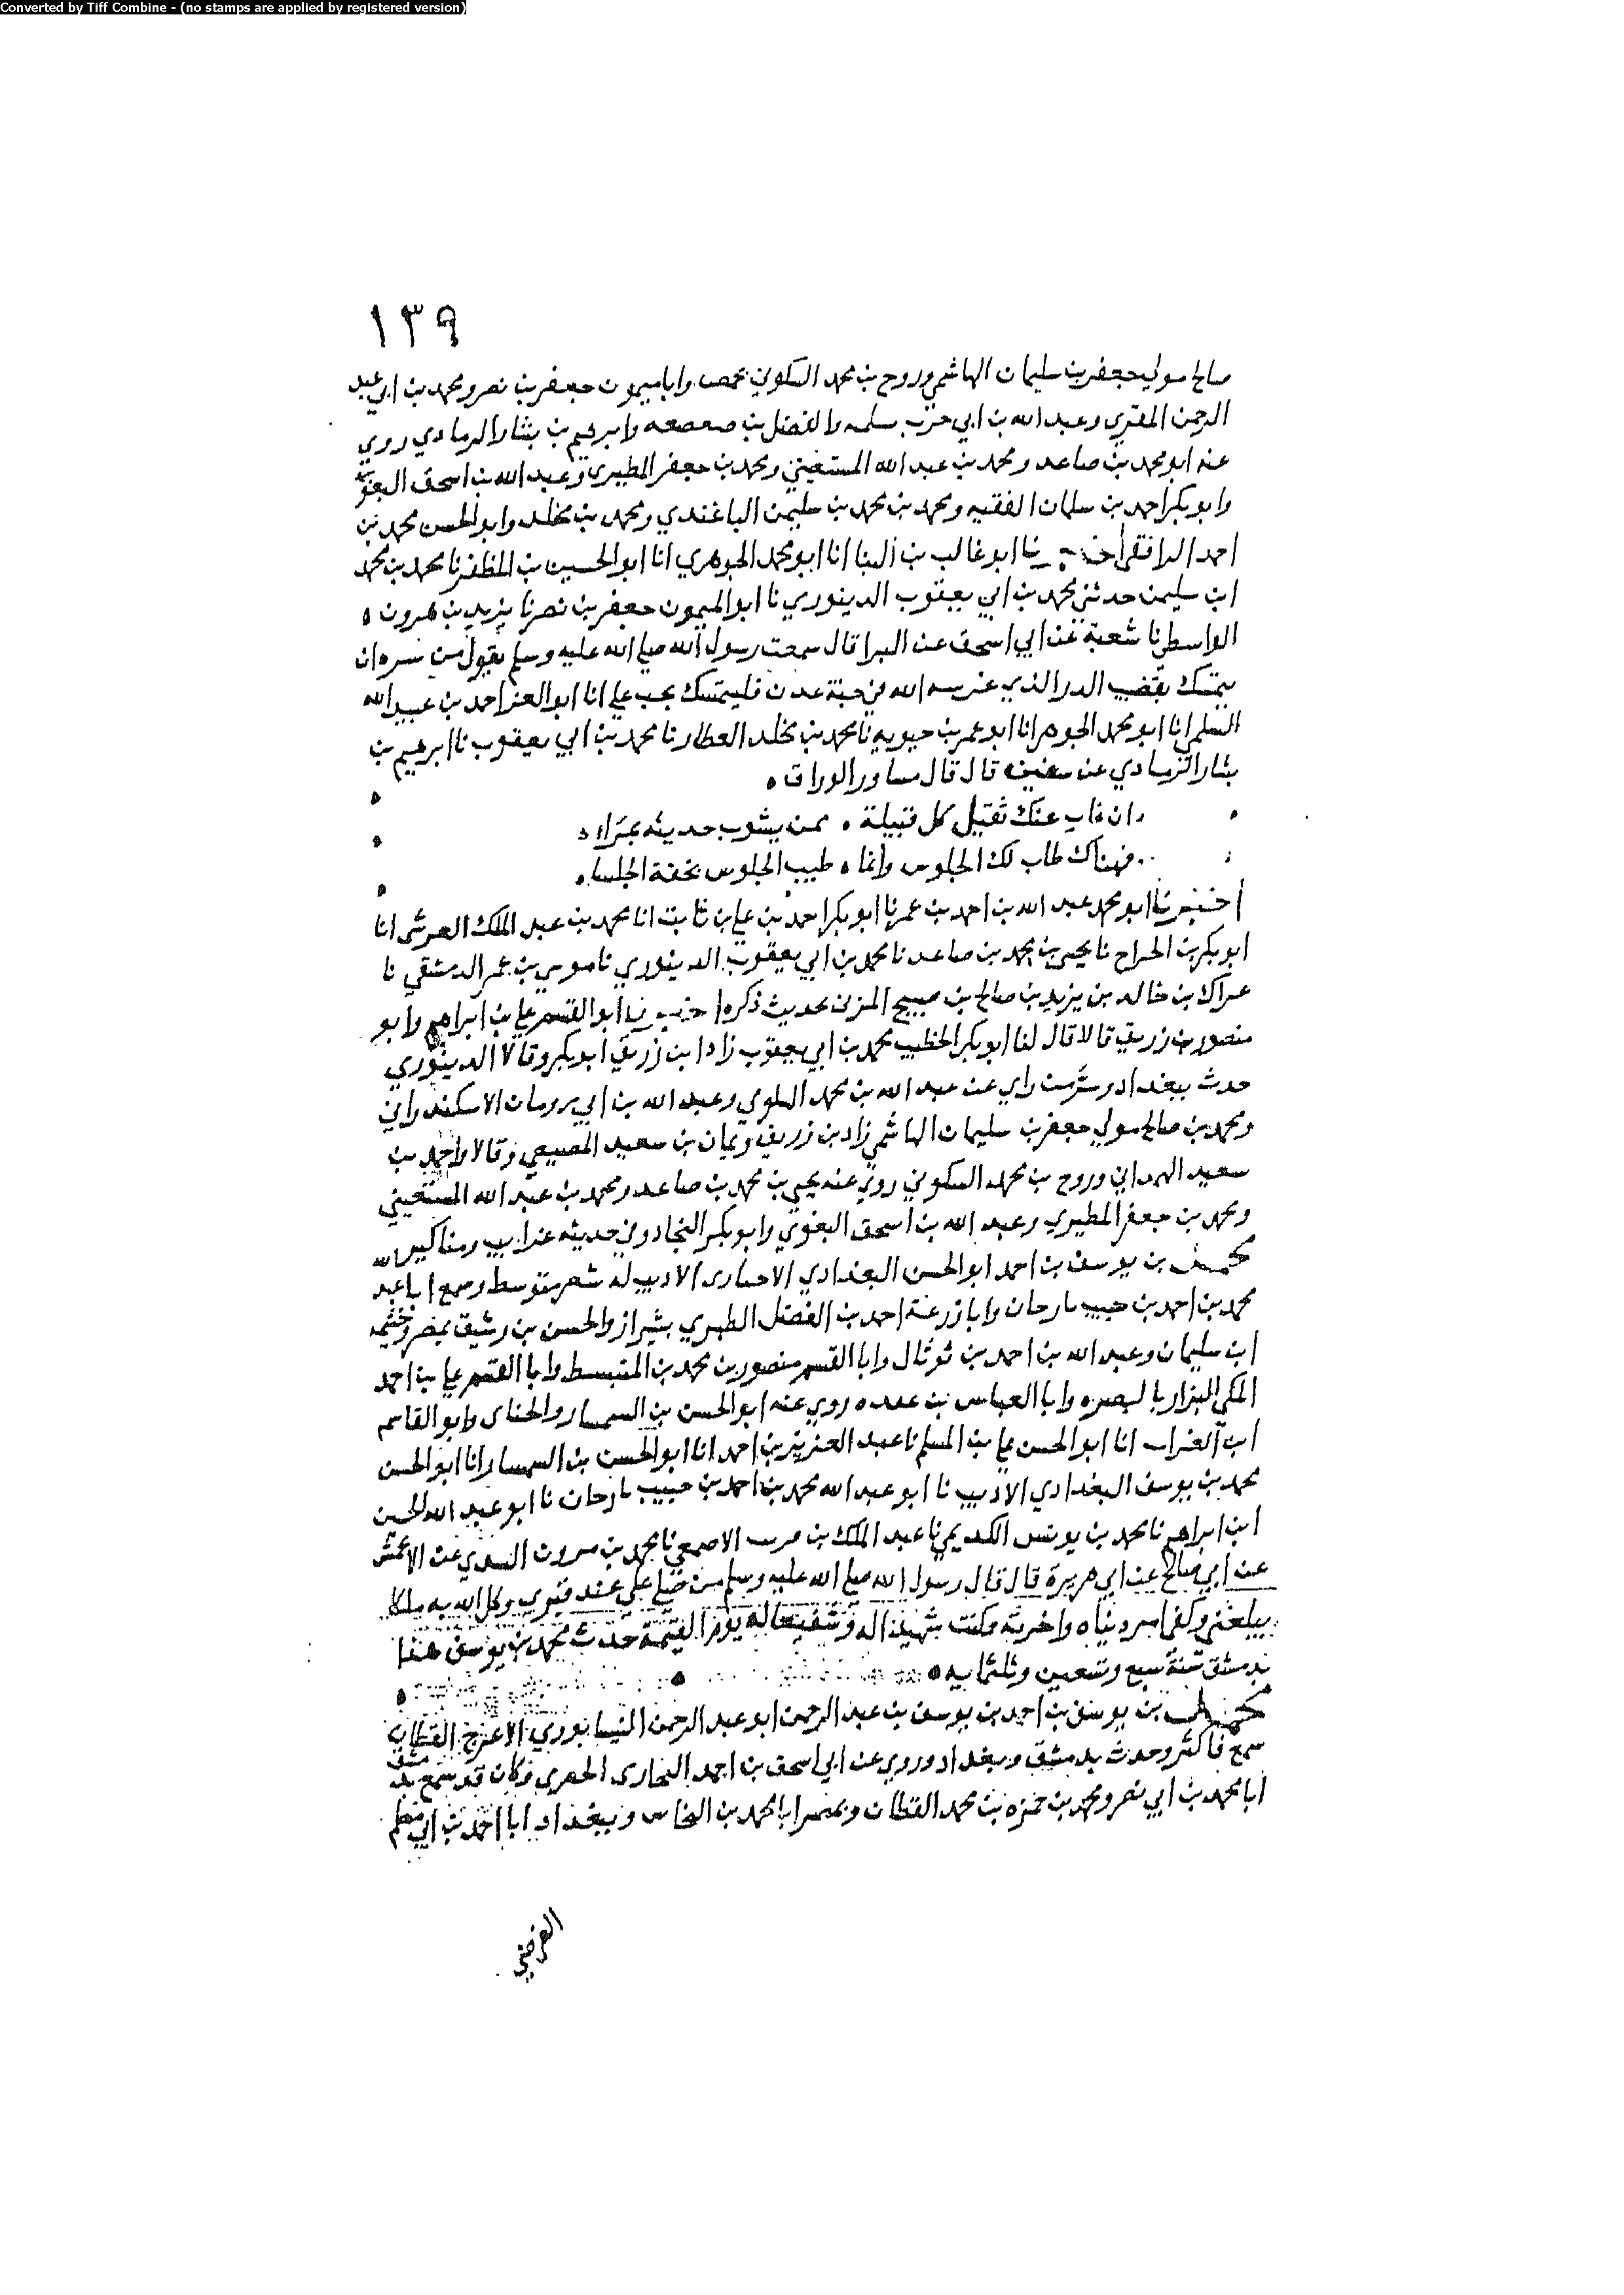 Converted by Tiff Combine - (no stamps are applied by registered version)
١٣٩
صالح مولى جعفر بن سليمان الهاشمي وروح بن محمد السكوني بحمص وابا ميمون جعفر بن نصر ومحمد بن ابي عبد
الرحمن المقري وعبد الله بن ابي حرب سلمه والفضل بن صعصعه وابرهيم بن بشار الرمادي روي
عنه ابو محمد بن صاعد ومحمد بن عبد الله المستعيني ومحمد بن جعفر المطيري وعبد الله بن اسحق البغوي
وابو بكر احمد بن سلمان الفقيه ومحمد بن محمد بن سليمن الباغندي ومحمد بن مخلد وابو الحسن محمد بن
احمد الرافقي اخبرنا ابو غالب بن البنا انا ابو محمد الجوهري انا ابو الحسين بن المظفر نا محمد بن محمد
ابن سليمن حدثني محمد بن ابي يعقوب الدينوري نا ابو الميمون جعفر بن نصر نا يزيد بن هرون ه
الواسطي نا شعبة عن ابي اسحق عن البرا قال سمعت رسول الله صلى الله عليه وسلم يقول من سره ان
يتمسك بقضيب الدر الذي غرسه الله في جنة عدن فليتمسك بحب علي انا ابو العز احمد بن عبيد الله
السلمي انا ابو محمد الجوهر انا ابو عمر بن حيويه نا محمد بن مخلد العطار نا محمد بن ابي يعقوب نا ابرهيم بن
بشار الرمادي عن سفين قال قال مساور الوراق ه
ان غاب عنك ثقيل كل قبيلة ه ممن يشوب حديثه بمراء
فهناك طاب لك الجلوس وانما ه طيب الجلوس بخفة الجلسا ه
اخبرنا ابو محمد عبد الله بن احمد بن عمر نا ابو بكر احمد بن علي بن ثابت انا محمد بن عبد الملك القرشي انا
ابو بكر بن الجراح نا يحيى بن محمد بن صاعد نا محمد بن ابي يعقوب الدينوري نا موسى بن عمر الدمشقي نا
عراك بن خالد بن يزيد بن صالح بن صبيح المزني بحديث ذكره اخبرنا ابو القسم علي بن ابراهيم وابو
منصور بن زريق قالا قال لنا ابو بكر الخطيب محمد بن ابي يعقوب زاد ابن زريق ابو بكر وقالا الدينوري
حدث ببغداد وسر من راي عن عبد الله بن محمد البلوي وعبد الله بن ابي رومان الاسكندراني
ومحمد بن صالح مولي جعفر بن سليمان الهاشمي زاد بن زريق ويمان بن سعيد المصيصي وقالا واحمد بن
سعيد الهمداني وروح بن محمد السكوني روي عنه يحيى بن محمد بن صاعد ومحمد بن عبد الله المستعيني
ومحمد بن جعفر المطيري وعبد الله بن اسحق البغوي وابو بكر النجاد وفي حديثه غرايب ومناكير
محمد بن يوسف بن احمد ابو الحسن البغدادي الاخباري الاديب له شعر متوسط وسمع ابا عبد
محمد بن احمد بن حبيب بارجان وابا زرعة احمد بن الفضل الطبري بشيراز والحسن بن رشيق بمصر وخيثمه
ابن سليمان وعبد الله بن احمد بن ثوثال وابا القسم منصور بن محمد بن المتبسط وابا القسم علي بن احمد
المكي البزار بالبصره وابا العباس بن عقده روي عنه ابو الحسن بن السمسار والحناي وابو القاسم
ابن الفرات انا ابو الحسن علي بن المسلم نا عبد العزيز بن احمد انا ابو الحسن بن السمسار انا ابو الحسن
محمد بن يوسف البغدادي الاديب نا ابو عبد الله محمد بن احمد بن حبيب بارجان نا ابو عبد الله الحسن
ابن ابراهيم نا محمد بن يونس الكديمي نا عبد الملك بن قريب الاصمعي نا محمد بن مروان السدي عن الاعمش
عن ابي صالح عن ابي هريرة قال قال رسول الله صلى الله عليه وسلم من صلى علي عند قبري وكل الله به ملكا
يبلغني وكفى امر دنياه واخرته وكنت شهيدا له وشفيعا له يوم القيمة حدث محمد بن يوسف هذا
بدمشق سنة سبع وتسعين وثلثمايه ه
محمد بن يوسف بن احمد بن يوسف بن عبد الرحمن ابو عبد الرحمن النيسابوري الاعرج القطان
سمع فاكثر وحدث بدمشق وببغداد وروي عن ابي اسحق بن احمد البخاري الحصري وكان قد سمع بدمشق
ابا محمد بن ابي نصر ومحمد بن حمزه بن محمد القطان وبمصر ابا محمد بن النحاس وببغداد ابا احمد بن ابي مسلم
الفرضي